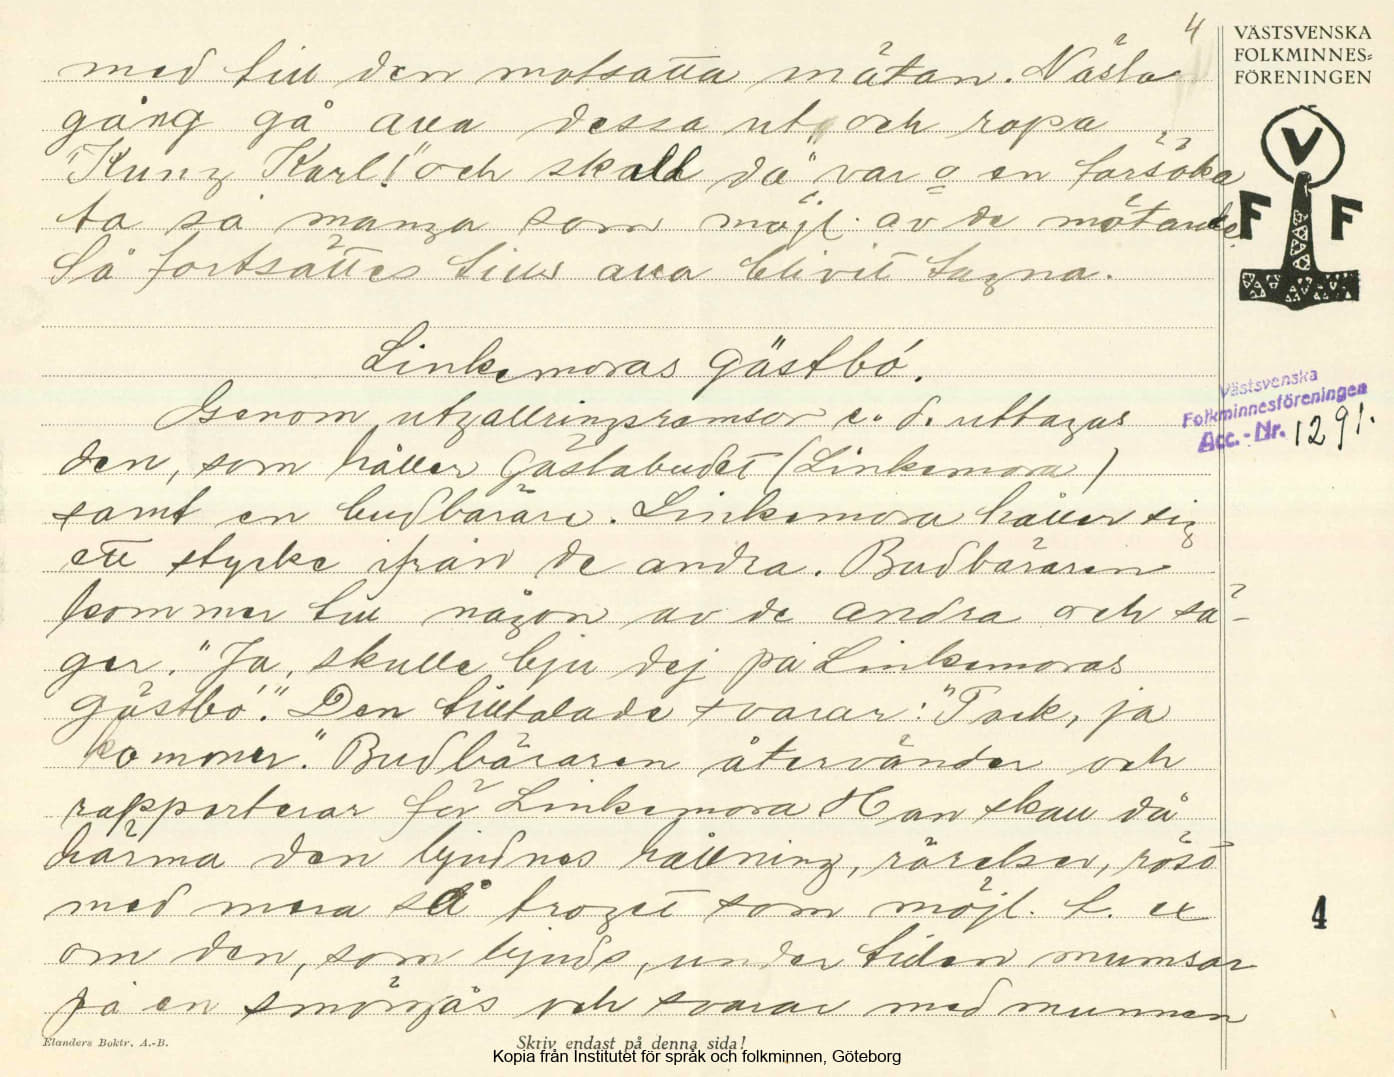 4
VÄSTSVENSKA
FOLKMINNES-
FÖRENINGEN
V
F F
med till den motsatta mötan. Nästa
gång gå alla dessa ut, och ropa
"Kung Karl!" och skall då var o en försöka
ta så många som möjl. av de mötande.
Så fortsättes tills alla blivit tagna.
Linkemoras gästbö.
Genom utgallringsramsor e. d. uttagas
den, som håller gästabudet (Linkemora)
samt en budbärare. Linkemora håller sig
ett stycke ifrån de andra. Budbäraren
kommer till någon av de andra och sä-
ger. "Ja, skulle bju dej på Linkemoras
gästbö." Den tilltalade svarar: "Tack, ja
kommer." Budbäraren återvänder och
rapporterar för Linkemora Han skall då
härma den bjudnes hållning, rörelser, röst
med mera så troget som möjl. t. ex
om den, som bjuds, under tiden mumsar
på en smörgås och svarar med munnen
Västsvenska
Folkminnesföreningen
Acc.-Nr. 1291.
4
Elanders Boktr. A.-B.
Skriv endast på denna sida!
Kopia från Institutet för språk och folkminnen, Göteborg